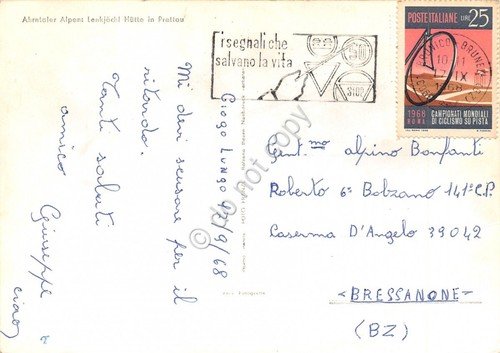 Ahrntaler Alpen: Lenkjöchl Hütte in Prettau
i segnali che
salvano la vita
STOP
POSTE ITALIANE LIRE 25
1968
ROMA
CAMPIONATI MONDIALI
DI CICLISMO SU PISTA
Giogo Lungo 12/9/68
Mi devi scusare per il
ritardo.
Tanti saluti
amico
Giuseppe
ciao
Gent.mo Alpino Bonfanti
Roberto 6ª Bolzano 141ª C.P.
Caserma D'Angelo 39042
-BRESSANONE-
(BZ)
do not copy